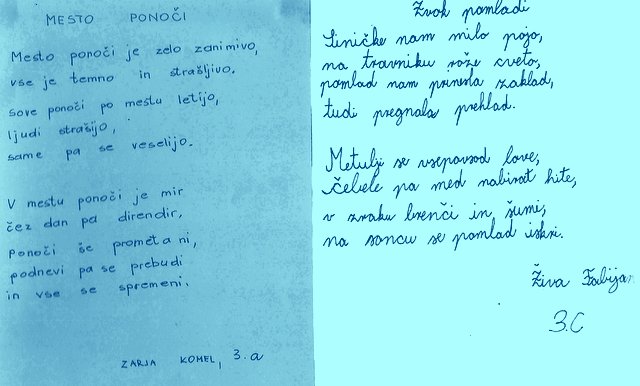 MESTO PONOČI
Mesto ponoči je zelo zanimivo,
vse je temno in strašljivo.
Sove ponoči po mestu letijo,
ljudi strašijo,
same pa se veselijo.
V mestu ponoči je mir
čez dan pa direndir,
Ponoči še prometa ni,
podnevi pa se prebudi
in vse se spremeni.
ZARJA KOMEL, 3.a
Zvok pomladi
Siničke nam milo pojo,
na travniku rože cveto,
pomlad nam prinesla zaklad,
tudi pregnala prehlad.
Metulji se vsepovsod love,
čebele pa med nabirat hite,
v zraku brenči in šumi,
na soncu se pomlad iskri.
Živa Fabijan
3.C